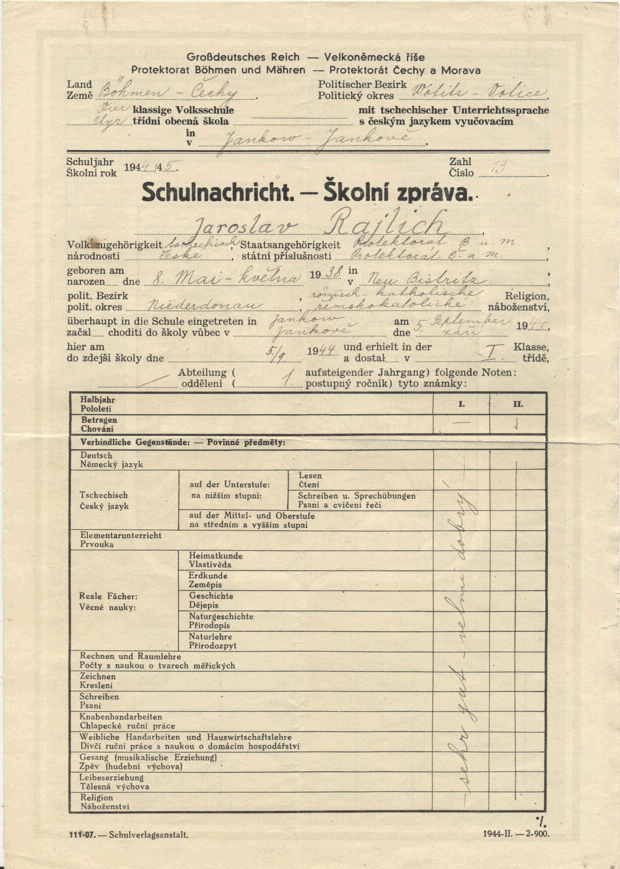 Großdeutsches Reich — Velkoněmecká říše
Protektorat Böhmen und Mähren — Protektorát Čechy a Morava
Land Böhmen - Čechy. Politischer Bezirk Wotitz - Votice.
Země Politický okres
Vier klassige Volksschule mit tschechischer Unterrichtssprache
čtyř třídní obecná škola s českým jazykem vyučovacím
in
v Jankow - Jankově.
Schuljahr 1944/45. Zahl 13
Školní rok Číslo
Schulnachricht. — Školní zpráva.
Jaroslav Rajlich,
Volkszugehörigkeit tschechisch, Staatsangehörigkeit Protektorat B. u. M,
národnosti české, státní příslušnosti Protektorát Č. a. M.
geboren am 8. Mai - května 1938 in Neu Bistritz,
narozen dne v
polit. Bezirk Niederdonau, römisch-katholische Religion,
polit. okres římskokatolické náboženství,
überhaupt in die Schule eingetreten in Jankow am 5. September 1944,
začal choditi do školy vůbec v Jankově dne září
hier am 5/9 1944 und erhielt in der I. Klasse,
do zdejší školy dne a dostal v třídě,
Abteilung ( 1 aufsteigender Jahrgang) folgende Noten:
oddělení ( postupný ročník) tyto známky:
Halbjahr I. II.
Pololetí
Betragen —
Chování
Verbindliche Gegenstände: — Povinné předměty:
Deutsch
Německý jazyk
Tschechisch
Český jazyk
auf der Unterstufe:
na nižším stupni:
Lesen
Čtení
Schreiben u. Sprechübungen
Psaní a cvičení řeči
auf der Mittel- und Oberstufe
na středním a vyšším stupni
Elementarunterricht
Prvouka
Reale Fächer:
Věcné nauky:
Heimatkunde
Vlastivěda
Erdkunde
Zeměpis
Geschichte
Dějepis
Naturgeschichte
Přírodopis
Naturlehre
Přírodozpyt
Rechnen und Raumlehre
Počty s naukou o tvarech měřických
Zeichnen
Kreslení
Schreiben
Psaní
Knabenhandarbeiten
Chlapecké ruční práce
Weibliche Handarbeiten und Hauswirtschaftslehre
Dívčí ruční práce s naukou o domácím hospodářství
Gesang (musikalische Erziehung)
Zpěv (hudební výchova)
Leibeserziehung
Tělesná výchova
Religion
Náboženství
sehr gut - velmi dobrý
./.
111-07. — Schulverlagsanstalt. 1944-II. — 2-900.